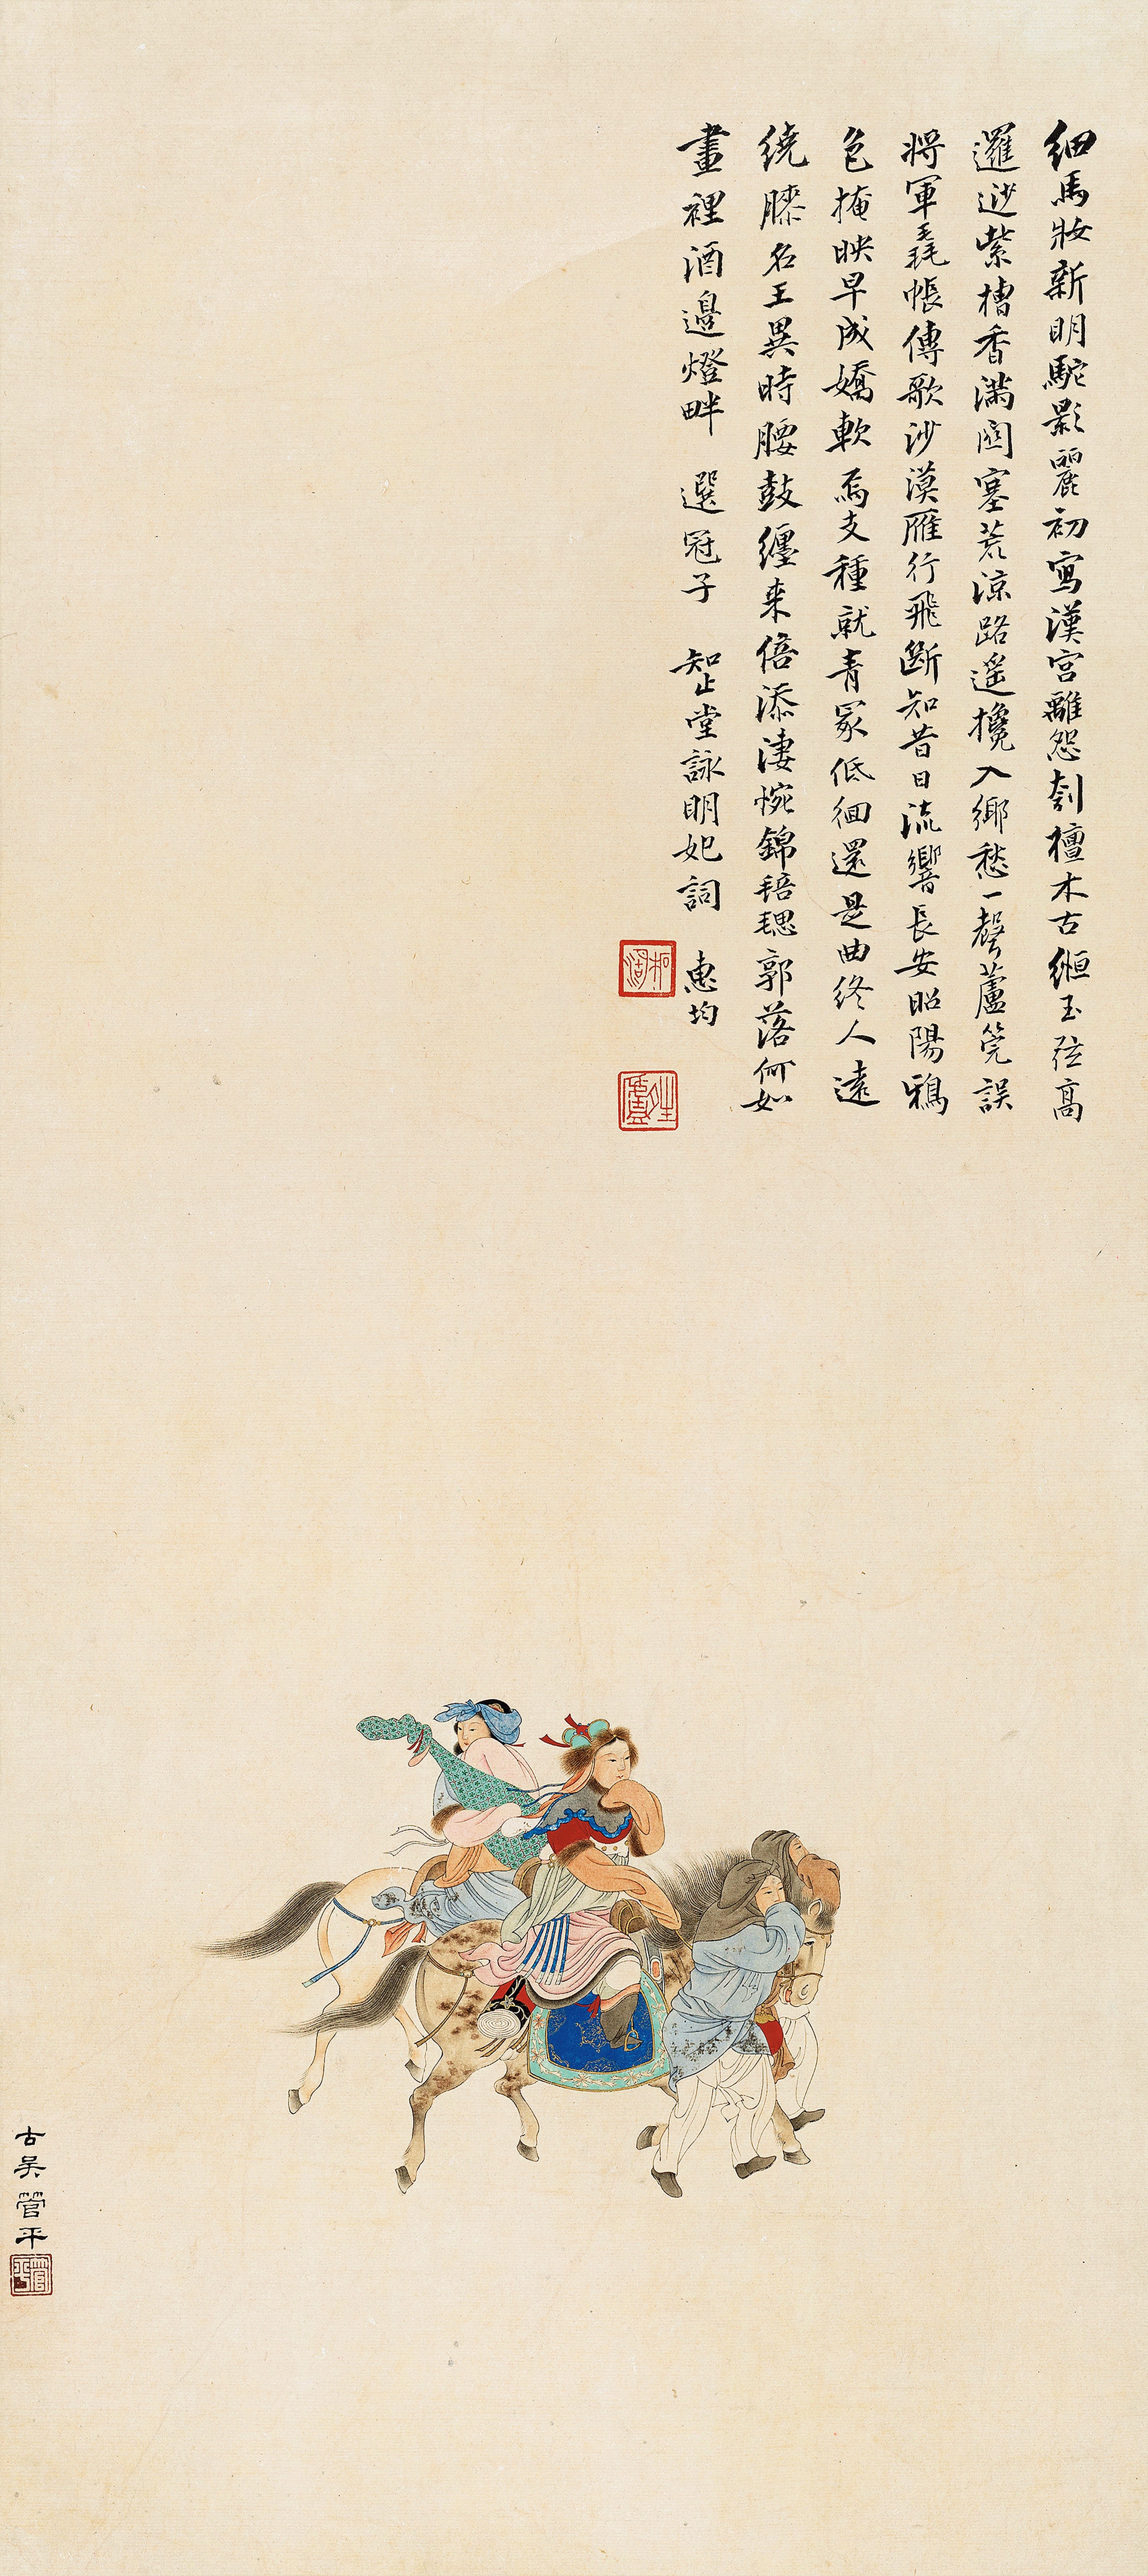 細馬妝新明駝影麗初寫漢宮離怨刳檀木古縆玉弦高
邏逤紫槽香滿關塞荒涼路遙攙入鄉愁一聲蘆筦誤
將軍毳帳傳歌沙漠雁行飛斷知昔日流響長安昭陽鴉
色掩映早成嬌軟焉支種就青冢低徊還是曲終人遠
繞膝名王異時腰鼓纏來倍添淒惋錦毰毸郭落何如
畫裡酒邊燈畔 選冠子 知止堂詠明妃詞 惠均
古吳管平
管平